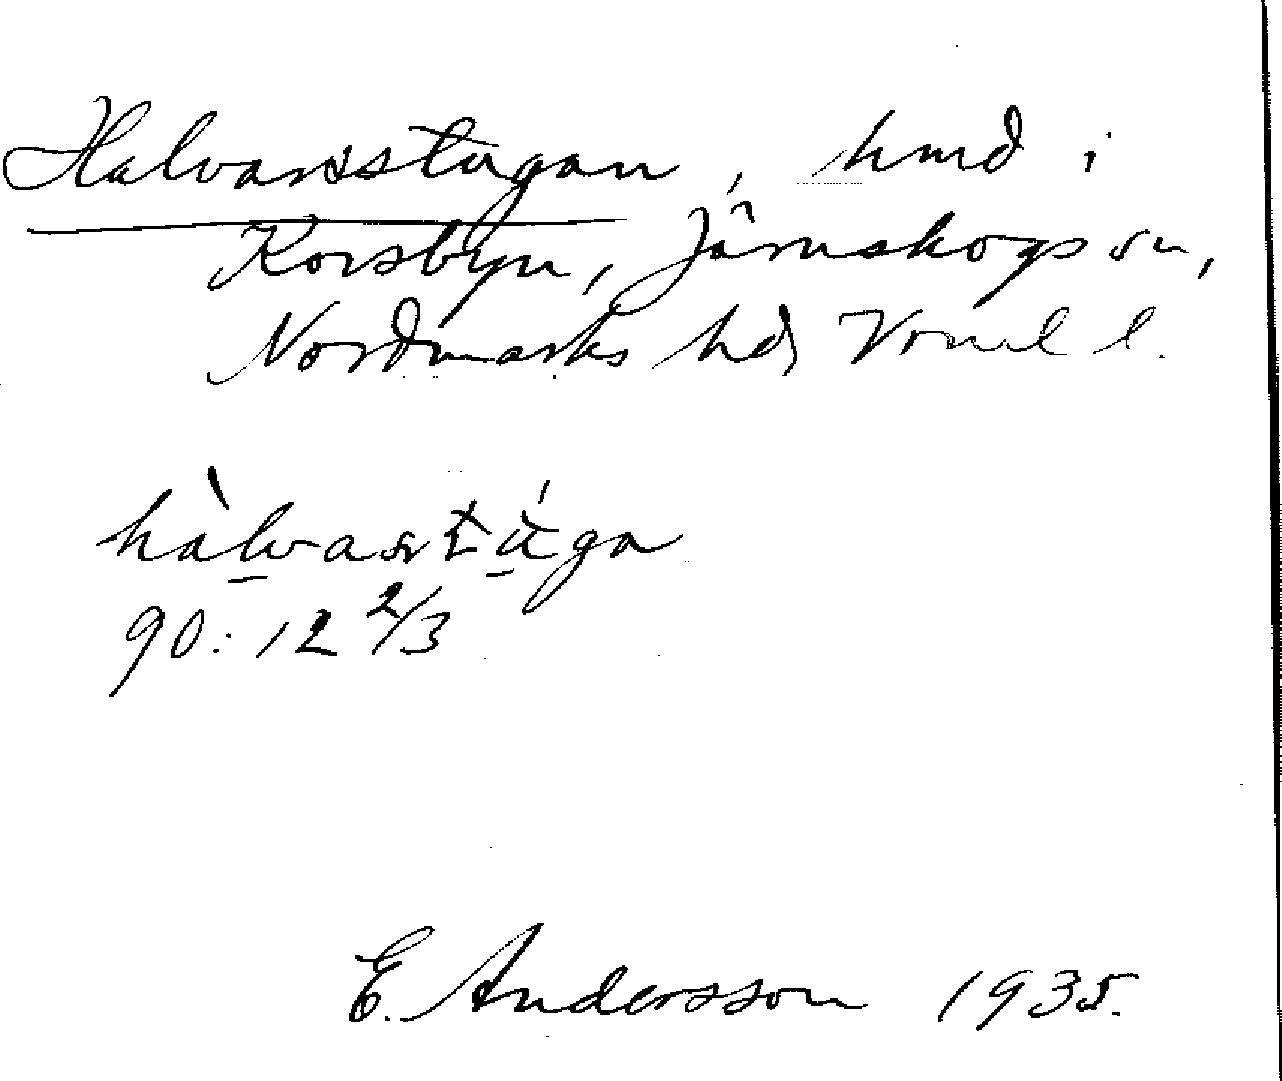 Halvarsstugan, hmd i
Korsbyn, Järnskogs sn,
Nordmarks hd, Vrml l.
hàlvastúga
90: 12 2/3
E. Andersson 1935.